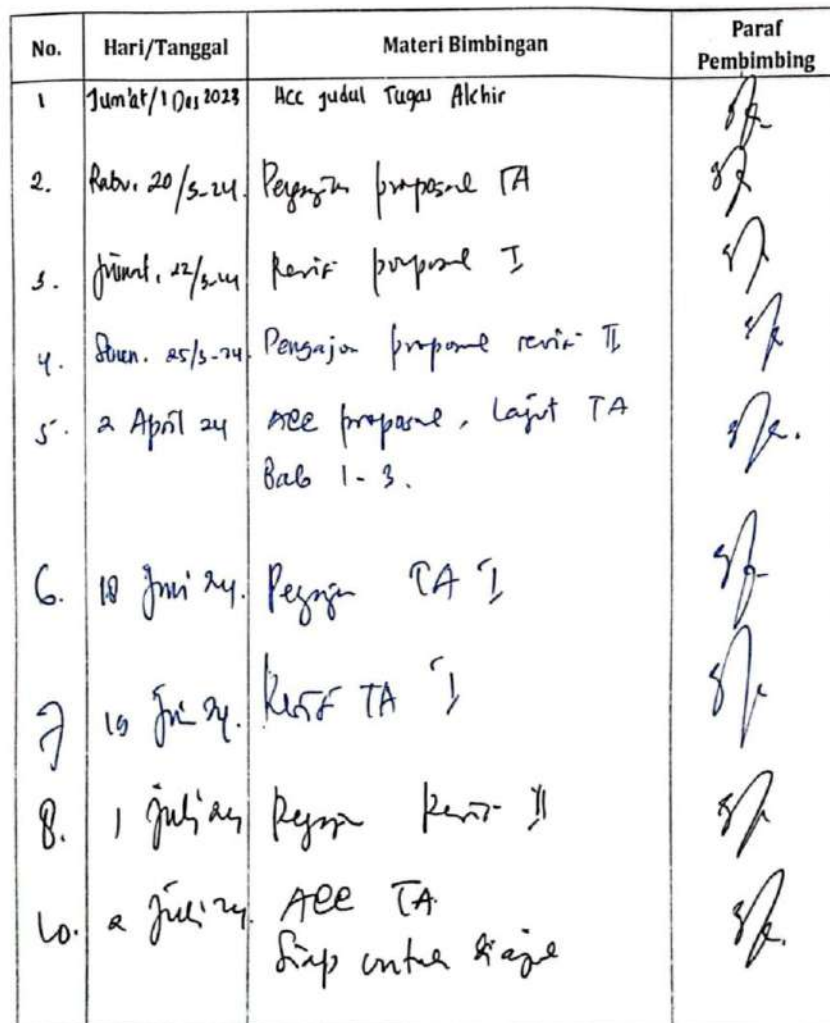 No. Hari/Tanggal Materi Bimbingan Paraf Pembimbing
1 Jum'at/1 Des 2023 Acc judul Tugas Akhir
2. Rabu, 20/3-24. Pengajuan proposal TA
3. Jum'at, 22/3-24 Revisi proposal I
4. Senen. 25/3-24. Pengajuan proposal revisi II
5. 2 April 24 Acc proposal, Lajut TA
Bab 1-3.
6. 18 Juni 24. TA I
7 19 Juni 24. Revisi TA I
8. 1 Juli 24 Revisi II
10. 2 Juli 24. Acc TA
Siap untuk